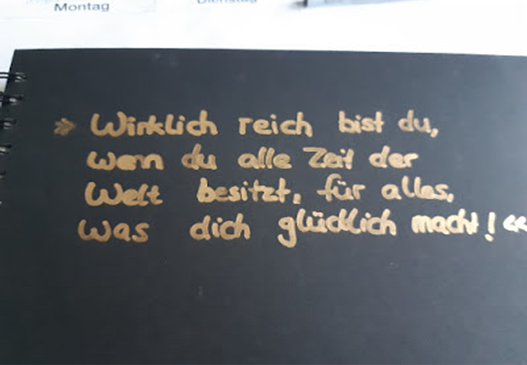 Montag Dienstag
» Wirklich reich bist du,
wenn du alle Zeit der
Welt besitzt, für alles,
was dich glücklich macht! «